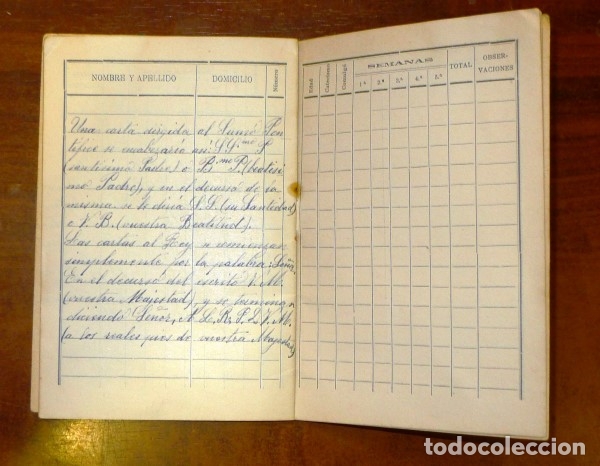 NOMBRE Y APELLIDO
DOMICILIO
Número
Una carta dirigida al Sumo Pon
tífice se encabezaría así: S.S.mo P
(santísimo Padre) ó B.mo P. (beatísi
mo Padre), y en el decurso de la
misma se le diría S.S. (su Santidad)
o V. B. (vuestra Beatitud).
Las cartas al Rey se comienzan
simplemente por la palabra: Señor.
En el decurso del escrito V. M.
(vuestra Majestad), y se termina
diciendo Señor, A L. R. P. D. V. M.
(a los reales pies de vuestra Majestad)
Edad
Catecismo
Comulgó
SEMANAS
1.ª 2.ª 3.ª 4.ª 5.ª
TOTAL
OBSER-
VACIONES
todocoleccion.net